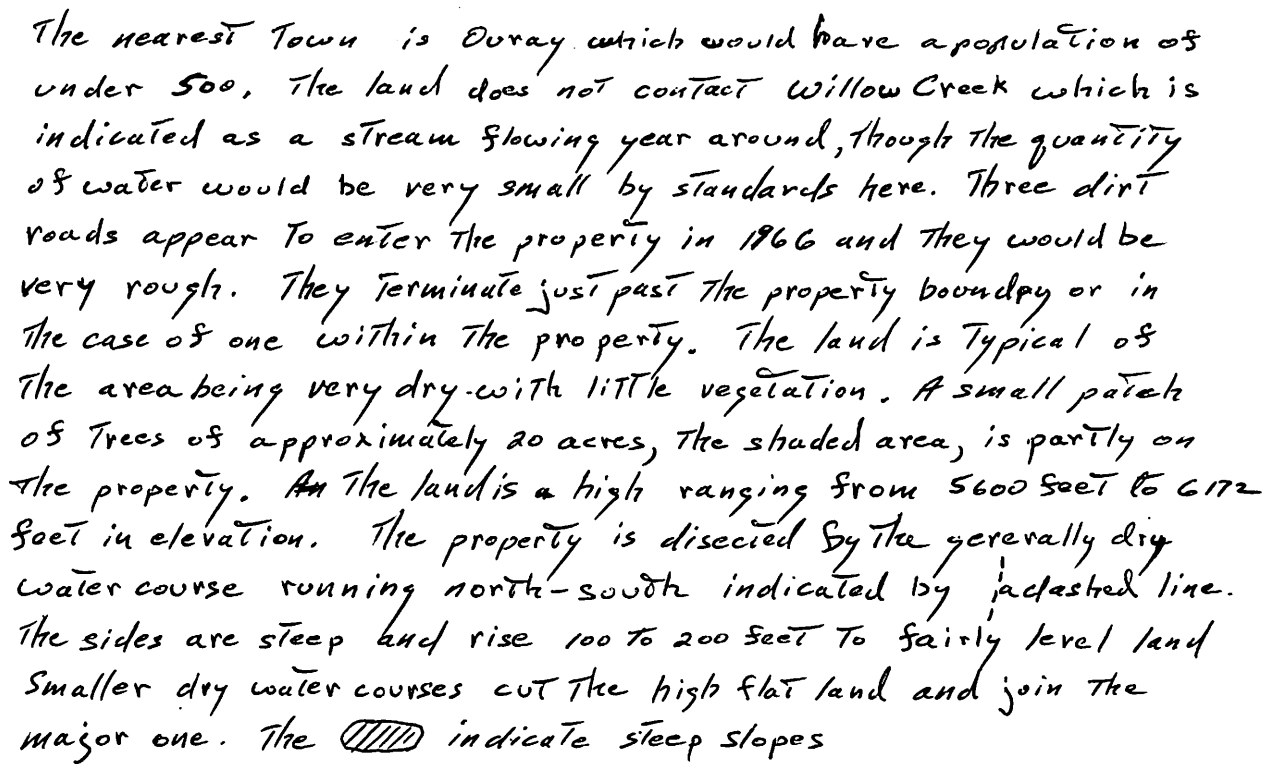 The nearest Town is Ouray which would have a population of
under 500. The land does not contact Willow Creek which is
indicated as a stream flowing year around, though the quantity
of water would be very small by standards here. Three dirt
roads appear To enter The property in 1966 and They would be
very rough. They Terminate just past The property boundry or in
The case of one within The property. The land is Typical of
The area being very dry-with little vegetation. A small patch
of Trees of approximately 20 acres, The shaded area, is partly on
The property. The land is a high ranging from 5600 feet to 6172
feet in elevation. The property is disected by The gererally dry
water course running north-south indicated by a dashed line.
The sides are steep and rise 100 To 200 feet To fairly level land
Smaller dry water courses cut The high flat land and join The
major one. The indicate steep slopes